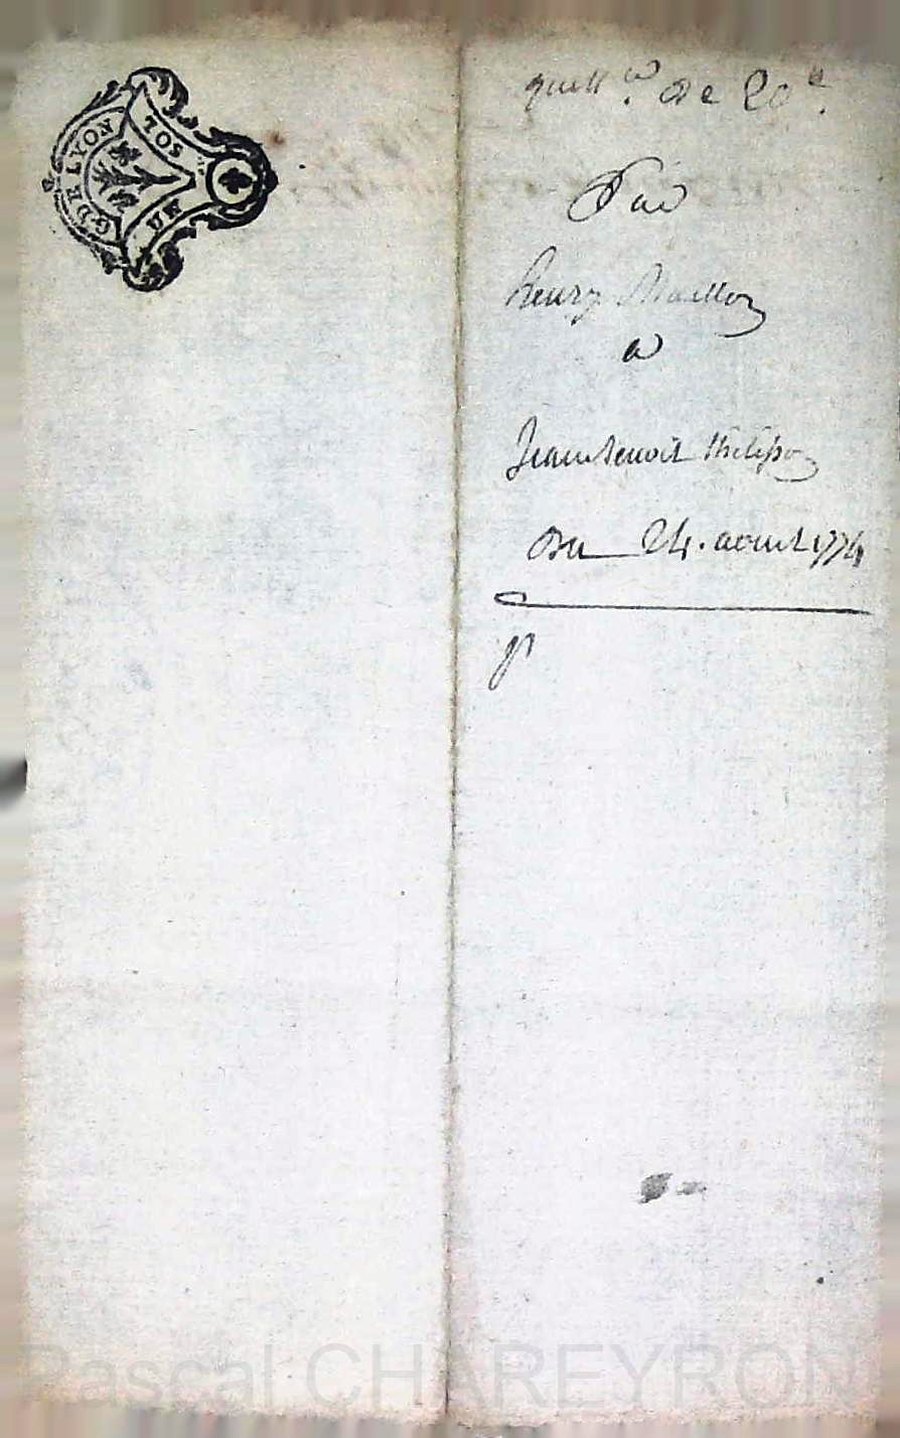 G. DE LYON
UN SOL
quitt.ce de 20 ll.
Par
henry Mallon
a
Jean benoit Philipon
Du 24. aoust 1774
Pascal CHAREYRON